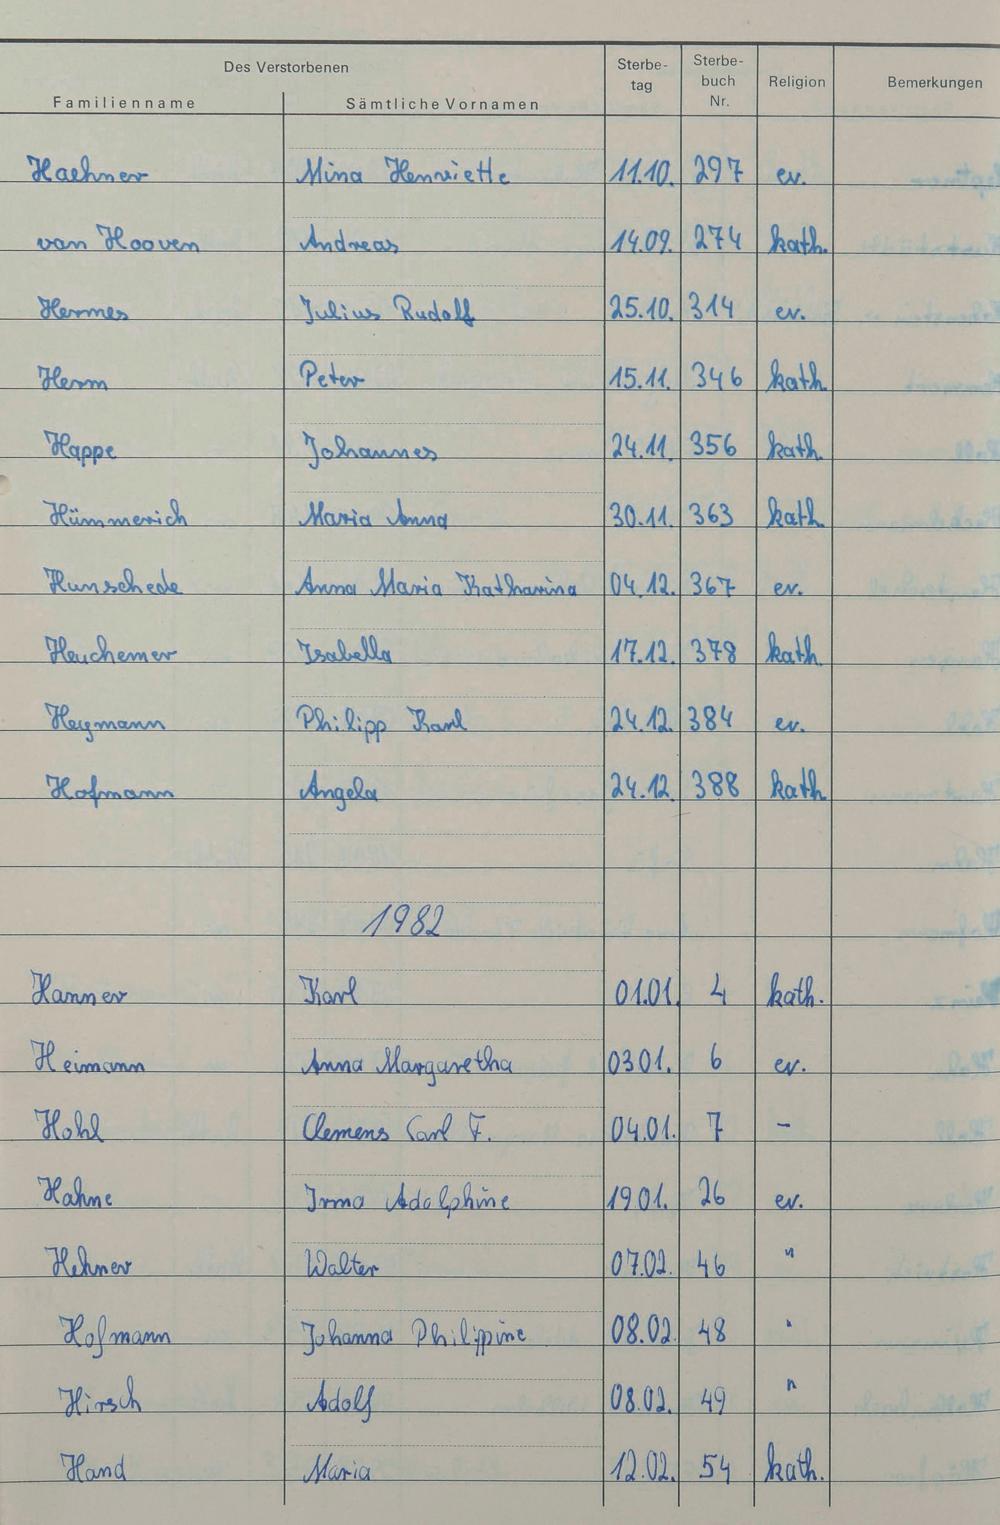 Des Verstorbenen
Familienname Sämtliche Vornamen Sterbe-tag Sterbe-buch Nr. Religion Bemerkungen
Haehner Mina Henriette 11.10. 297 ev.
van Hooven Andreas 14.09. 274 kath.
Hermes Julius Rudolf 25.10. 314 ev.
Herm Peter 15.11. 346 kath.
Happe Johannes 24.11. 356 kath.
Hümmerich Maria Anna 30.11. 363 kath.
Hunschede Anna Maria Katharina 04.12. 367 ev.
Heuchemer Isabella 17.12. 378 kath.
Heymann Philipp Karl 24.12. 384 ev.
Hofmann Angela 24.12. 388 kath.
1982
Hanner Karl 01.01. 4 kath.
Heimann Anna Margaretha 03 01. 6 ev.
Hohl Clemens Carl F. 04.01. 7 -
Hahne Irma Adolphine 19 01. 26 ev.
Hehner Walter 07.02. 46 "
Hofmann Johanna Philippine 08.02. 48 "
Hirsch Adolf 08.02. 49 "
Hand Maria 12.02. 54 kath.